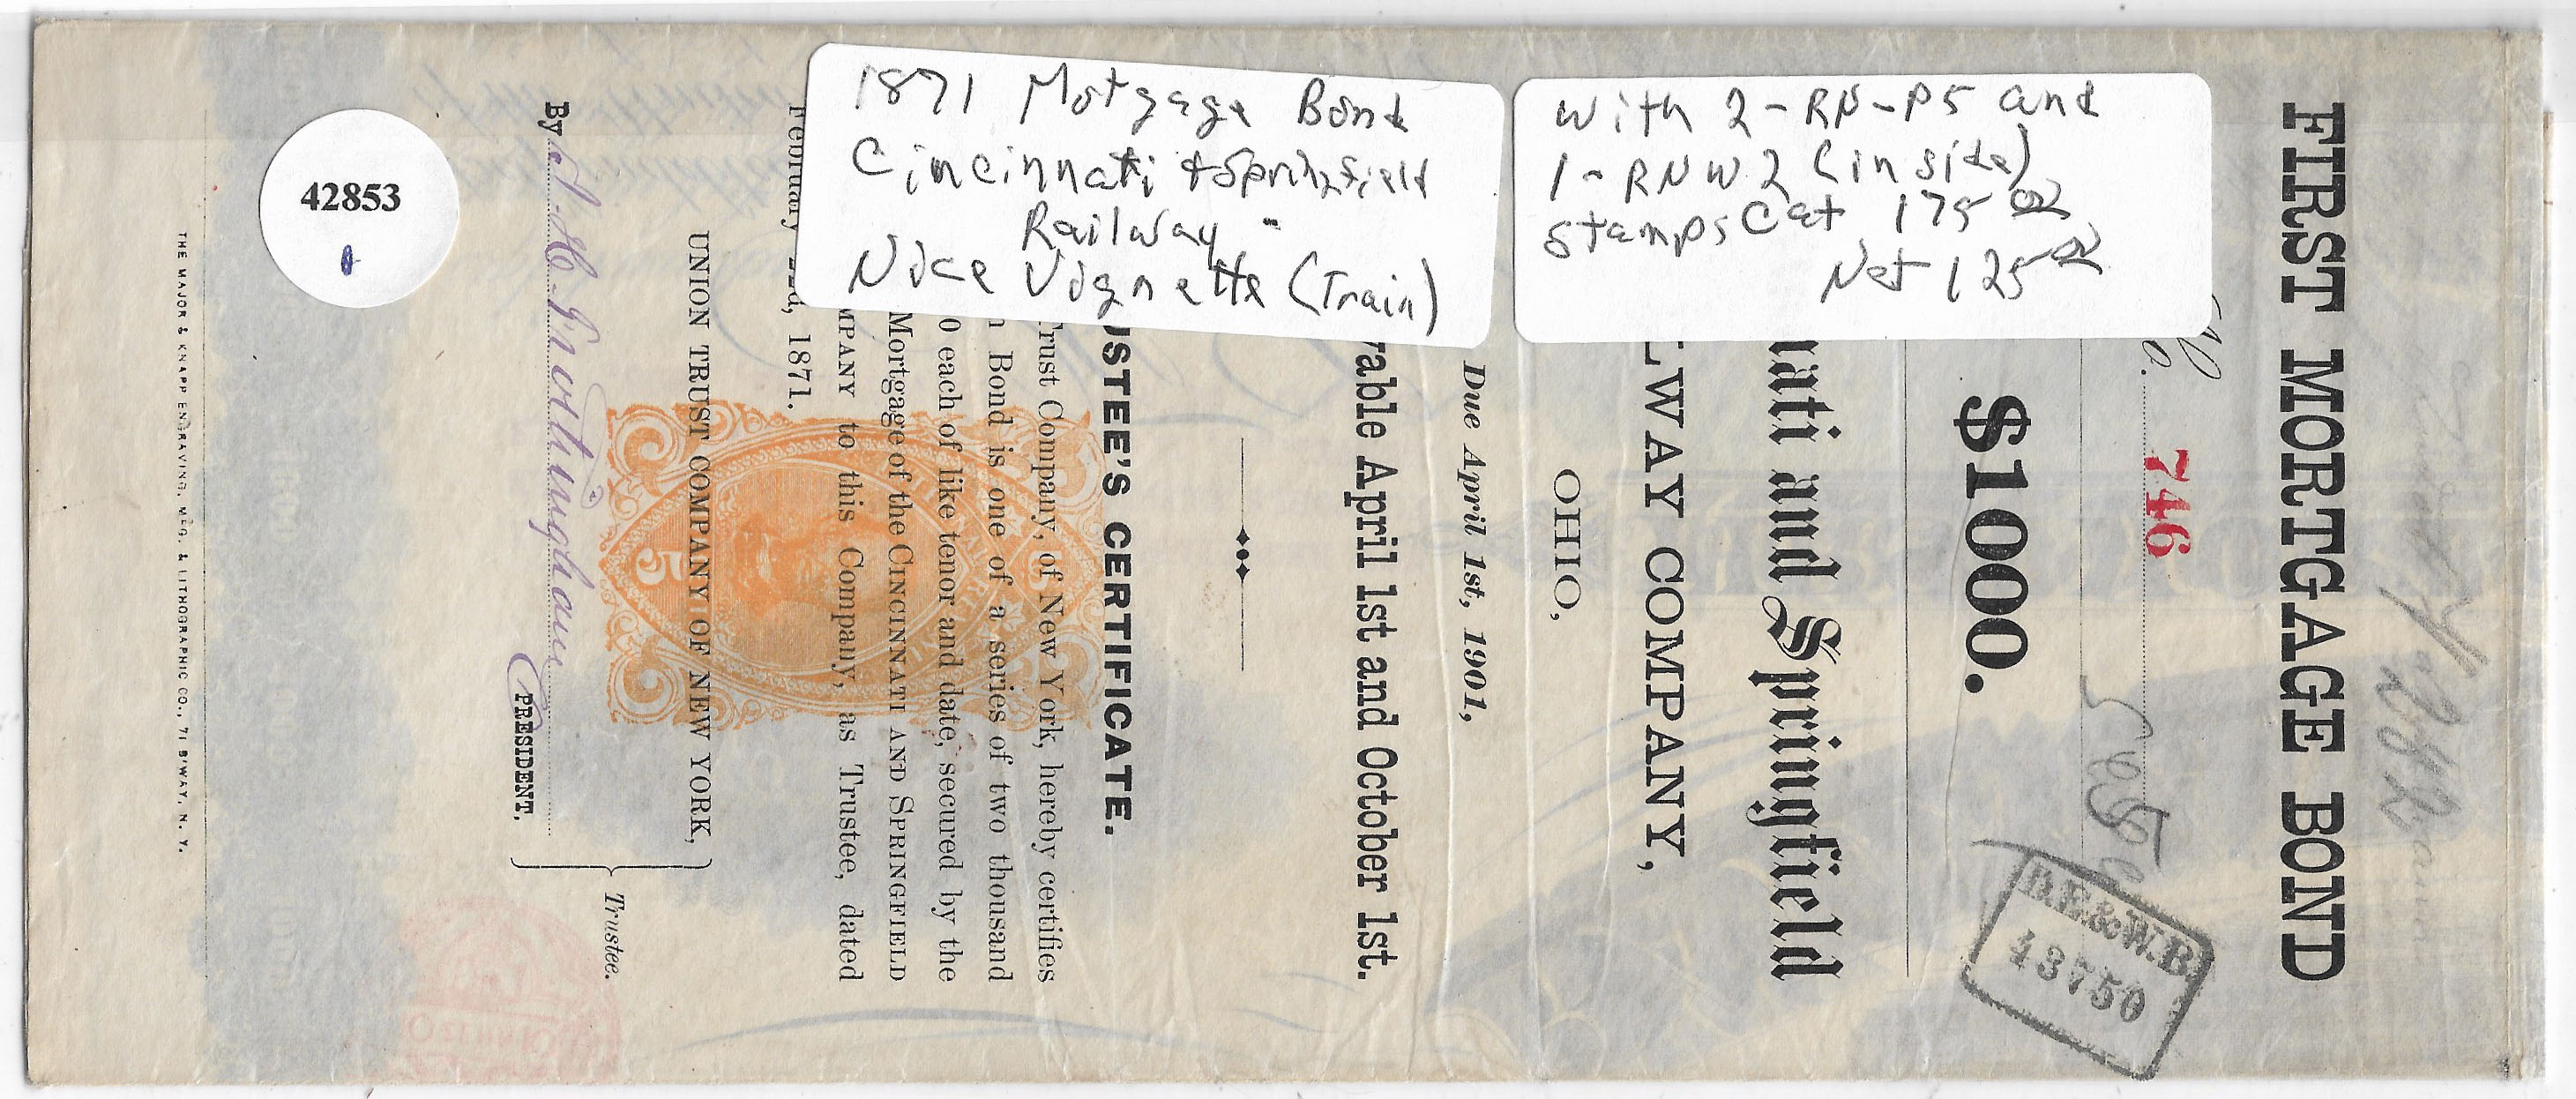 1871 Mortgage Bond
Cincinnati & Springfield
Railway -
Nice Vignette (Train)
With 2 - RN-P5 and
1 - RN W2 (inside)
stamps Cat 175 00
Net 125 00
42853
FIRST MORTGAGE BOND
No. 746
$1000.
nati and Springfield
LWAY COMPANY,
OHIO,
Due April 1st, 1901,
yable April 1st and October 1st.
USTEE'S CERTIFICATE.
Trust Company, of New York, hereby certifies
n Bond is one of a series of two thousand
0 each of like tenor and date, secured by the
Mortgage of the CINCINNATI AND SPRINGFIELD
MPANY to this Company, as Trustee, dated
February 22d, 1871.
UNION TRUST COMPANY OF NEW YORK,
Trustee.
By Frothingham
PRESIDENT.
THE MAJOR & KNAPP ENGRAVING, MFG. & LITHOGRAPHIC CO., 71 B'WAY, N. Y.
5
B.E.&W.B.
43750